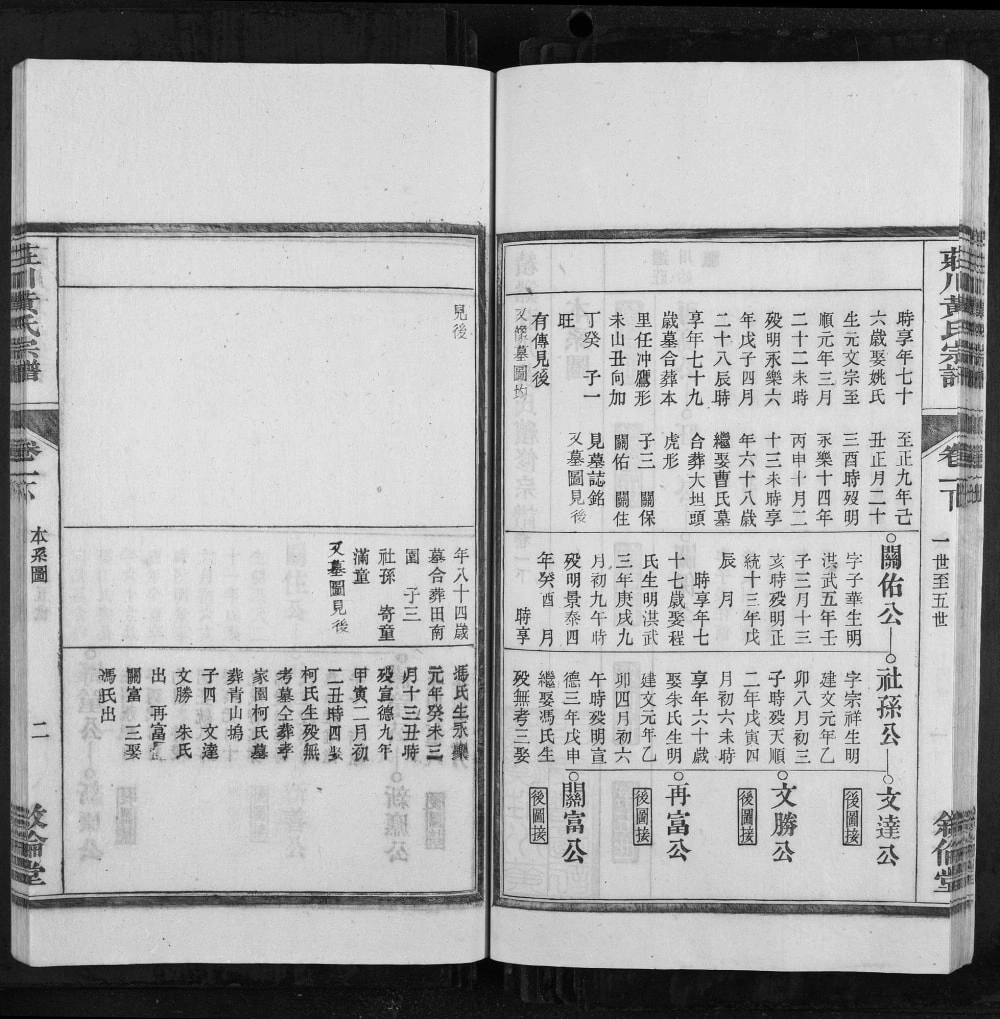 莊川黃氏宗譜
卷一下
一世至五世
敘倫堂
時享年七十
六歲娶姚氏
生元文宗至
順元年三月
二十二未時
歿明永樂六
年戊子四月
二十八辰時
享年七十九
歲墓合葬本
里任冲鷹形
未山丑向加
丁癸 子一
旺
有傳見後
又像墓圖均
至正九年己
丑正月二十
三酉時歿明
永樂十四年
丙申十月二
十三未時享
年六十八歲
繼娶曹氏墓
合葬大坦頭
虎形
子三 關保
關佑 關住
見墓誌銘
又墓圖見後
關佑公
字子華生明
洪武五年壬
子三月十三
亥時歿明正
統十三年戊
辰 月
時享年七
十七歲娶程
氏生明洪武
三年庚戌九
月初九午時
歿明景泰四
年癸酉 月
時享
社孫公
字宗祥生明
建文元年乙
卯八月初三
子時歿天順
二年戊寅四
月初六未時
享年六十歲
娶朱氏生明
建文元年乙
卯四月初六
午時歿明宣
德三年戊申
繼娶馮氏生
歿無考三娶
文達公
後圖接
文勝公
後圖接
再富公
後圖接
關富公
後圖接
見後
年八十四歲
墓合葬田南
園 子三
社孫 寄童
滿童
又墓圖見後
馮氏生永樂
元年癸未三
月十三丑時
歿宣德九年
甲寅二月初
二丑時四娶
柯氏生歿無
考墓仝葬孝
家園柯氏墓
葬青山塢
子四 文達
文勝 朱氏
出 再富
關富 三娶
馮氏出
莊川黃氏宗譜
卷一下
本系圖
二
敘倫堂